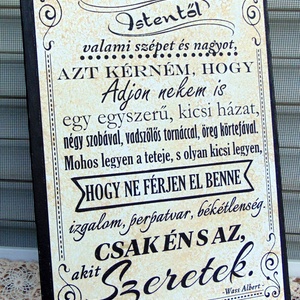 Istentől
valami szépet és nagyot,
AZT KÉRNÉM, HOGY
Adjon nekem is
egy egyszerű, kicsi házat,
négy szobával, vadszőlős tornáccal, öreg körtefával.
Mohos legyen a teteje, s olyan kicsi legyen,
HOGY NE FÉRJEN EL BENNE
izgalom, perpatvar, békétlenség.
CSAK ÉN S AZ,
akit
Szeretek.
-Wass Albert-